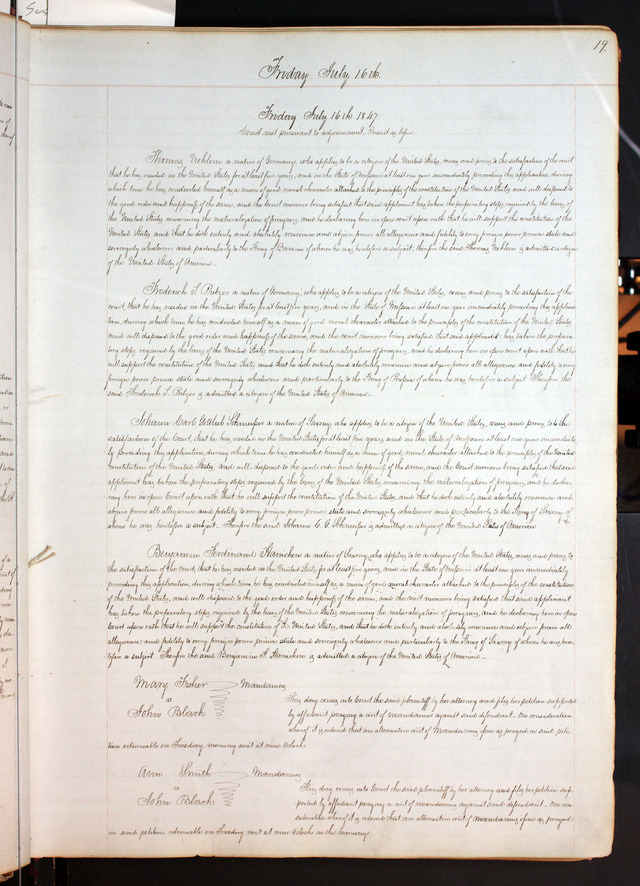 19.
Friday July 16th.
Friday July 16th 1847
Court met pursuant to adjournment. Present as before
Thomas a native of Germany, who applies to be a citizen of the United States, comes and proves to the satisfaction of the court
that he has resided in the United States for at least five years, and in the State of Missouri at least one year immediately preceding this application, during
which time he has conducted himself as a man of good moral character attached to the principles of the constitution of the United States, and well disposed to
the good order and happiness of the same, and the Court moreover being satisfied that said applicant has taken the preparatory steps required by the laws of
the United States concerning the naturalization of foreigners, and he declaring here in open court upon oath that he will support the constitution of the
United States and that he doth entirely and absolutely renounce and abjure forever all allegiance and fidelity to every foreign power prince state and
sovereignty whatsoever and particularly to the King of Bavaria of whom he was heretofore a subject; therefore the said Thomas is admitted a citizen
of the United States of America.
Frederick S. a native of Germany, who applies to be a citizen of the United States, comes and proves to the satisfaction of the
court, that he has resided in the United States for at least five years, and in the State of Missouri at least one year immediately preceding this applica-
tion, during which time he has conducted himself as a man of good moral character attached to the principles of the constitution of the United States,
and well disposed to the good order and happiness of the same, and the court moreover being satisfied that said applicant has taken the prepara-
tory steps required by the laws of the United States concerning the naturalization of foreigners, and he declaring here in open court upon oath that he
will support the constitution of the United States and that he doth entirely and absolutely renounce and abjure forever all allegiance and fidelity to every
foreign power prince state and sovereignty whatsoever and particularly to the King of of whom he was heretofore a subject Therefore the
said Frederick S. is admitted a citizen of the United States of America.
Johann Carl Gottlieb a native of Saxony who applies to be a citizen of the United States, comes and proves to the
satisfaction of the Court, that he has resided in the United States for at least five years, and in the State of Missouri at least one year immediate-
ly preceding this application, during which time he has conducted himself as a man of good moral character attached to the principles of the
constitution of the United States, and well disposed to the good order and happiness of the same, and the Court moreover being satisfied that said
applicant has taken the preparatory steps required by the laws of the United States concerning the naturalization of foreigners, and he declar-
ing here in open Court upon oath that he will support the constitution of the United States, and that he doth entirely and absolutely renounce and
abjure forever all allegiance and fidelity to every foreign power prince state and sovereignty whatsoever and particularly to the King of Saxony of
whom he was heretofore a subject. Therefore the said Johann C. G. is admitted a citizen of the United States of America
Benjamin Ferdinand a native of Saxony, who applies to be a citizen of the United States, comes and proves to
the satisfaction of the Court, that he has resided in the United States for at least five years, and in the State of Missouri at least one year immediately
preceding this application, during which time he has conducted himself as a man of good moral character attached to the principles of the constitution
of the United States, and well disposed to the good order and happiness of the same, and the court moreover being satisfied that said applicant
has taken the preparatory steps required by the laws of the United States concerning the naturalization of foreigners, and he declaring here in open
Court upon oath that he will support the constitution of the United States, and that he doth entirely and absolutely renounce and abjure forever all
allegiance and fidelity to every foreign power prince state and sovereignty whatsoever and particularly to the King of Saxony of whom he was here-
tofore a subject Therefore the said Benjamin F. is admitted a citizen of the United States of America
Mary Fisher Mandamus
vs
John Black
This day comes into Court the said plaintiff by her attorney and files her petition supported
by affidavit praying a writ of mandamus against said defendant. On consideration
whereof it is ordered that an alternative writ of Mandamus issue as prayed in said peti-
tion returnable on Tuesday morning next at nine oclock
Ann Smith Mandamus
vs
John Black
This day comes into Court the said plaintiff by her attorney and files her petition sup-
ported by affidavit praying a writ of mandamus against said defendant. On con-
sideration whereof it is ordered that an alternative writ of Mandamus issue as prayed
in said petition returnable on Tuesday next at nine oclock in the morning